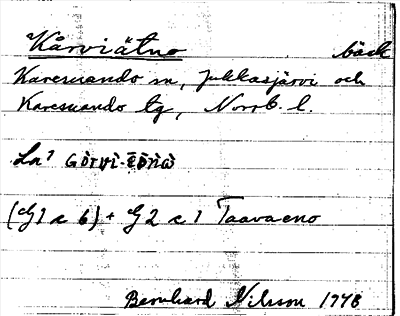 Kårviätno bäck
Karesuando sn, Jukkasjärvi och
Karesuando tg, Norrb. l.
(G1 a 6) + G2 c 1 Taavaeno
Bernhard Nilsson 1778